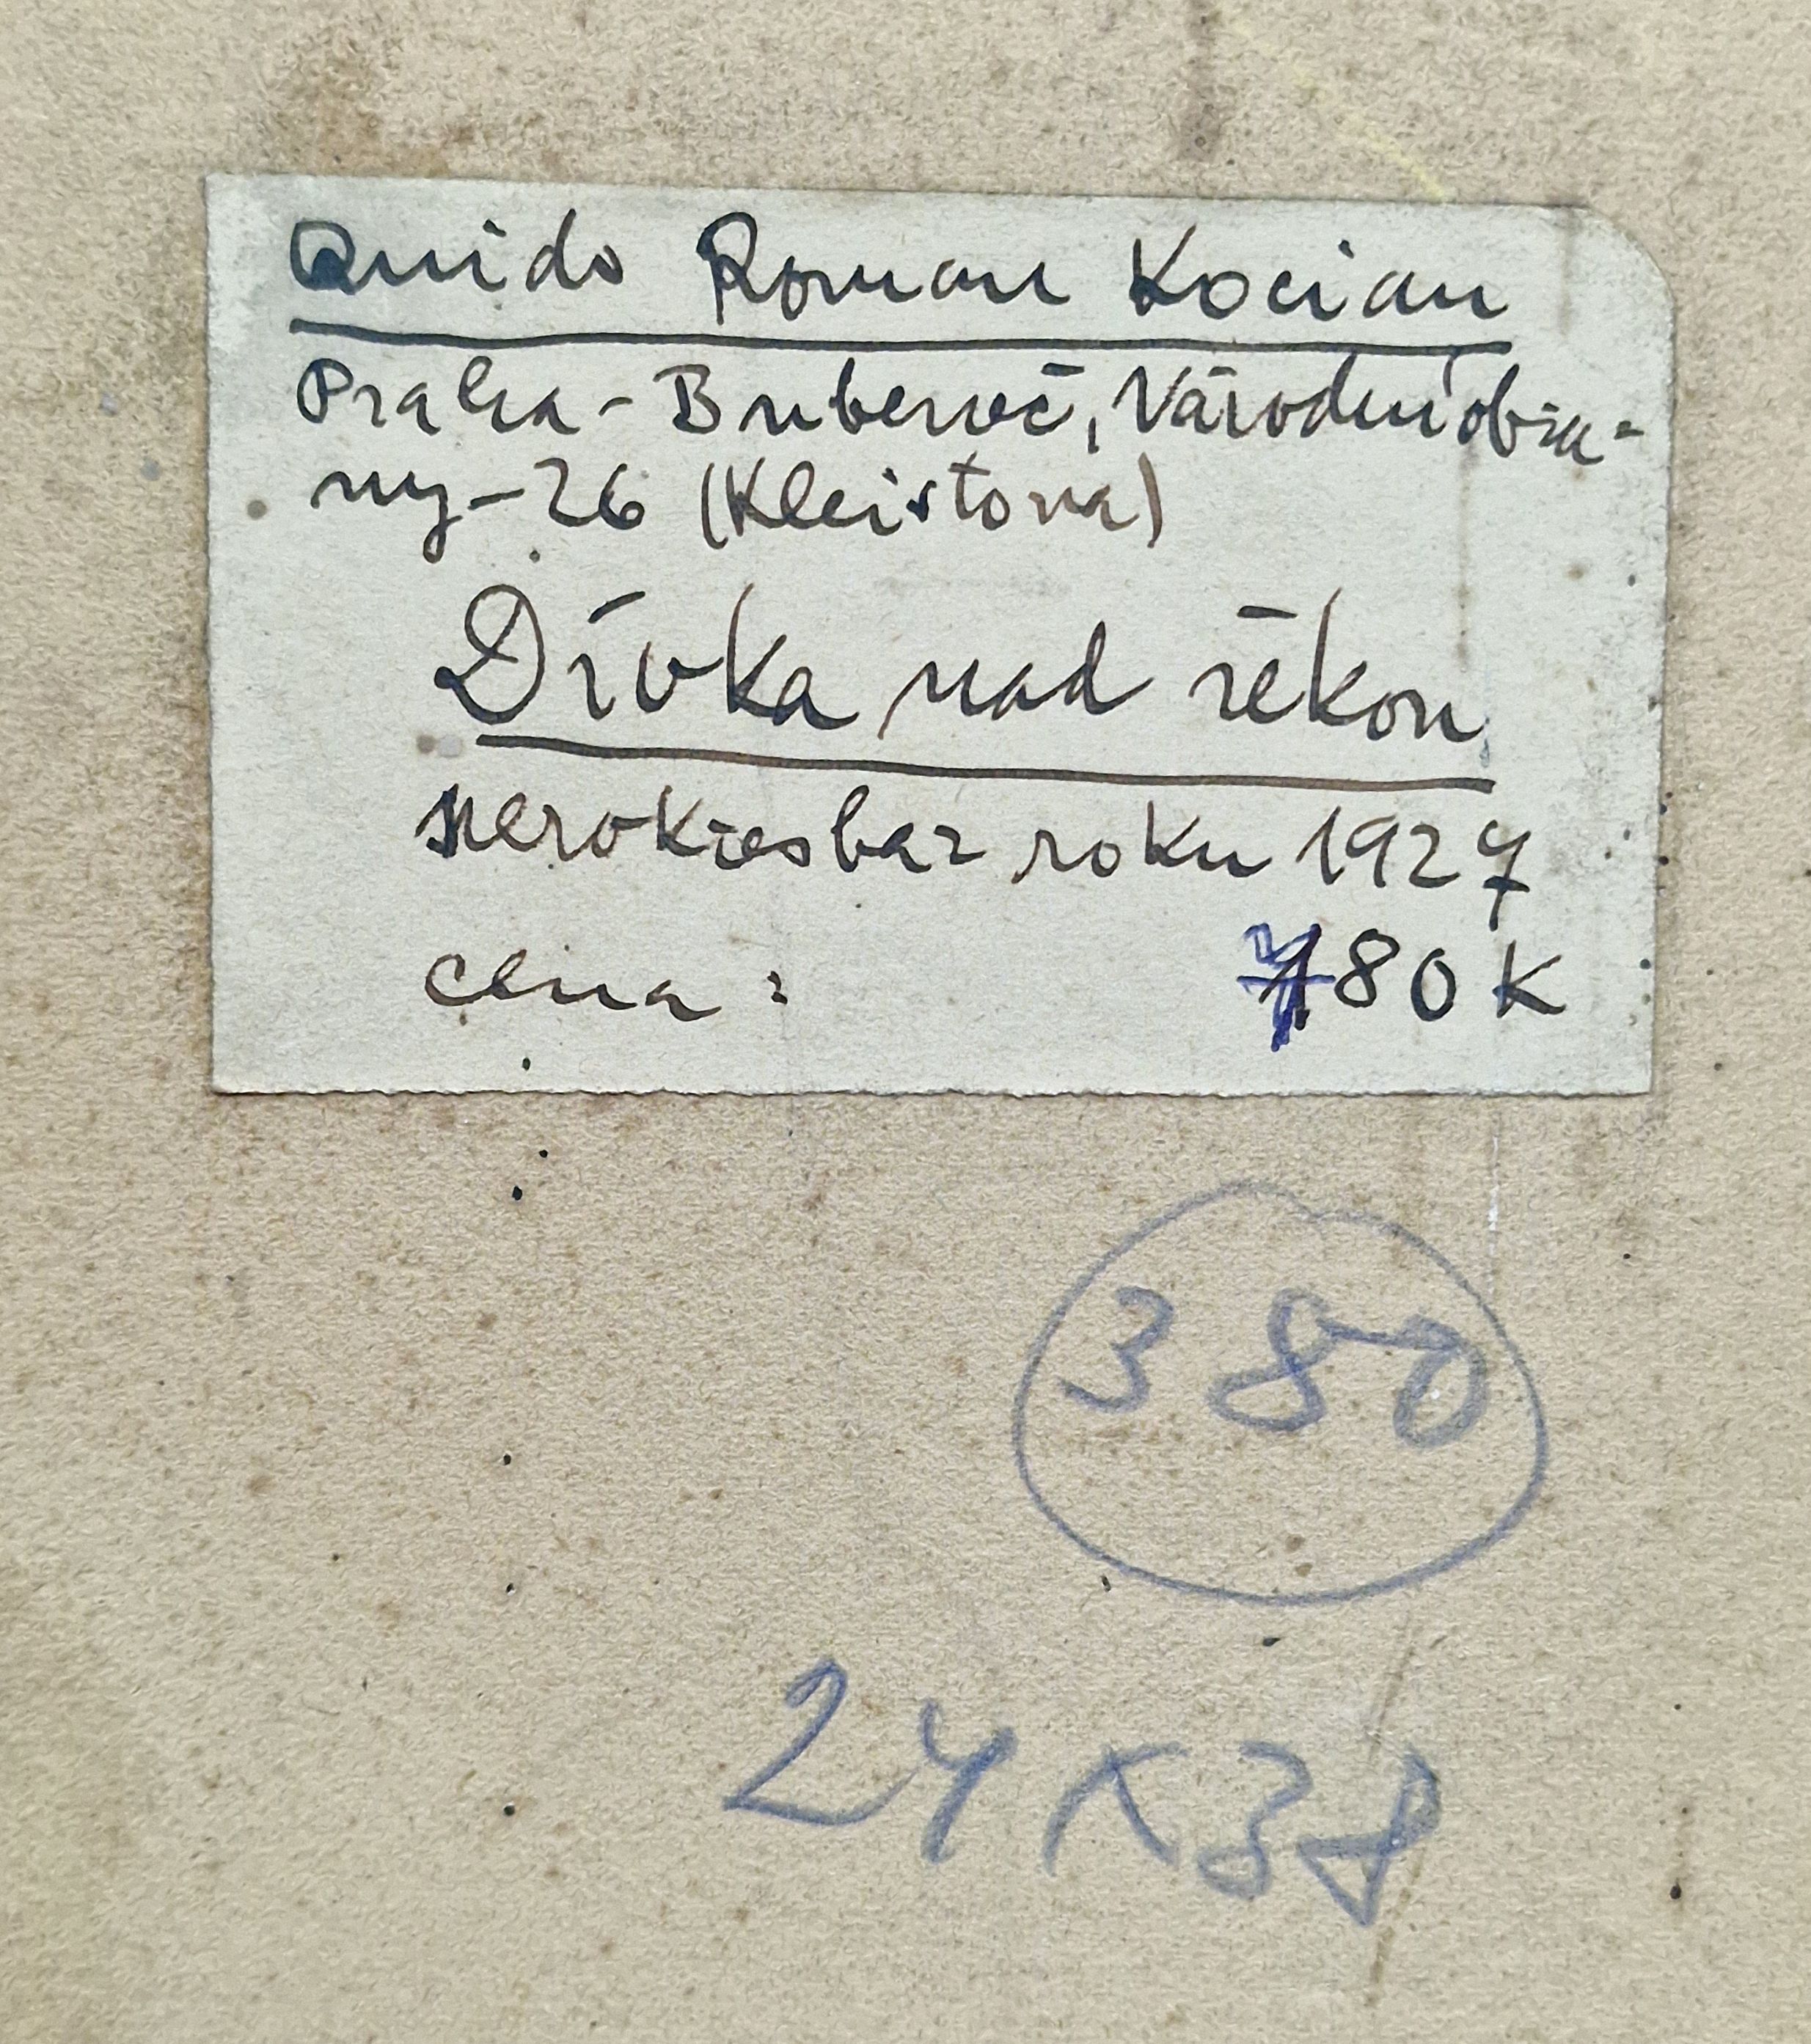 Quido Roman Kocian
Praha-Bubeneč, Národní obra=
ny-26 (Kleistova)
Dívka nad řekou
perokresba z roku 1927
cena: 780 K
380
24x38